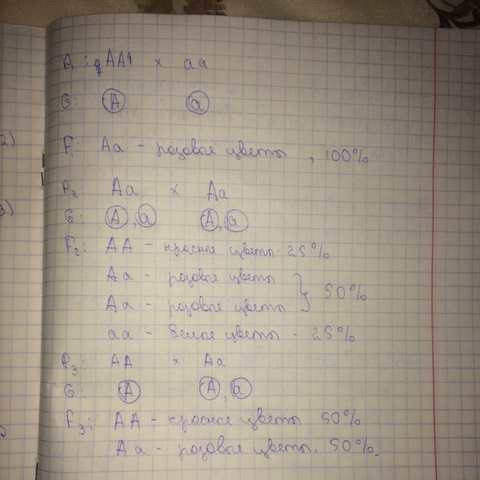 P₁: ♀AA♂ x aa
G: A a
F₁: Aa - розовые цветы, 100%
P₂: Aa x Aa
G: A, a A, a
F₂: AA - красные цветы - 25%
Aa - розовые цветы
Aa - розовые цветы } 50%
aa - белые цветы - 25%
P₃: AA x Aa
G: A A, a
F₃: AA - красные цветы 50%
Aa - розовые цветы. 50%.
2)
3)